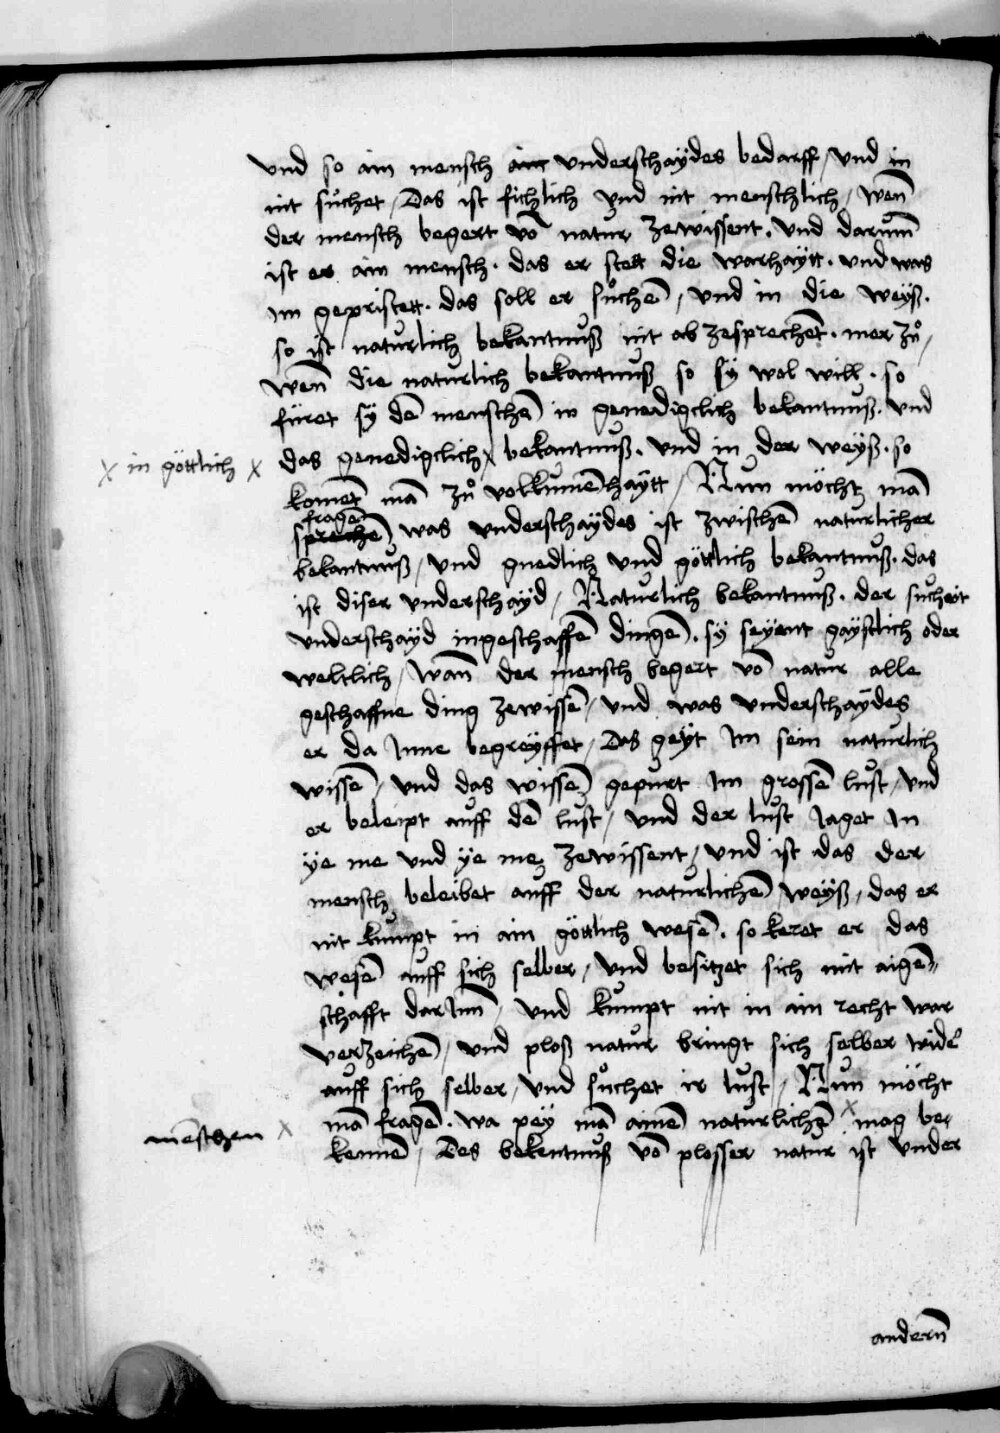 vnd so ain mensch ain vnderschaÿdes bedarff / vnd in
nit sůchet / Das ist fichlich vnd nit menschlich / wen̄
der mensch begert vō natur zewissent . vnd darum̄
ist er ain mensch . das er stett die warhaÿtt . vnd was
Im gepristett . das soll er sůchē / vnd in die weÿs .
so ist naturlich bekantnuß nit ab zesprechent . mer zů /
wen̄ die naturlich bekantnuß so sÿ wol will . so
füret sÿ dē menschē in genedigclich bekantnuß . vnd
das genedigclich x bekantnuß . vnd in der weÿs . so
x in göttlich x
komet mā zů volkumēhaÿtt / Nun möcht mā
fragē
sprechē was vnderschaÿdes ist zwischē naturlicher
bekantnuß / vnd gnedlich vnd göttlich bekantnuß . das
ist diser vnderschaÿd / Naturlich bekantnuß . der sůcheit
vnderschaÿd ingeschaffē dingē . sÿ seÿent gaÿstlich oder
weltlich / wan̄ der mensch begert vō natur alle
geschaffne ding zewissē / vnd was vnderschaÿdes
er da Inne begreÿffet / Das geÿt Im sein naturlich
wissē / vnd das wissē gepurt Im grossē lust / vnd
er beleipt auff dē lust / vnd der lust Jaget In
ÿe me vnd ÿe me zewissent / vnd ist das der
mensch beleibet auff der naturlichē weÿß / das er
nit kumpt in ain göttlich wesē . so keret er das
wesē auff sich selber / vnd besitzet sich mit aigē-
schafft dar Inn̄ / vnd kumpt nit in ain recht war
verzeichē / vnd ploß natur bringt sich selber wider
auff sich selber / vnd sůchet ir lust / Nun möcht
mā fragē . wa peÿ mā ainē naturlichē x mag be-
mēschen x
kennē / Des bekentnuß vō plosser natur ist vnder
andern̄